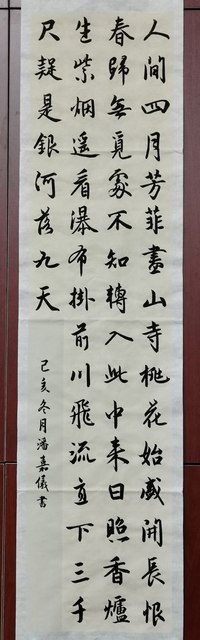 人間四月芳菲盡山寺桃花始盛開長恨
春歸無覓處不知轉入此中来日照香爐
生紫烟遥看瀑布掛前川飛流直下三千
尺疑是銀河落九天
己亥冬月潘嘉儀書